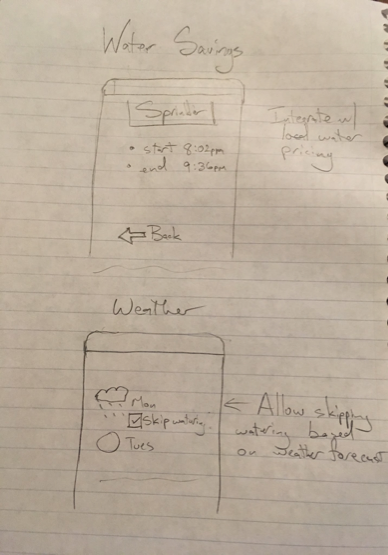 Water Savings
Sprinkler
• start 8:02pm
• end 9:36pm
Back
Integrate w/
local water
pricing
Weather
Mon
Skip watering
Tues
Allow skipping
watering based
on weather forecast